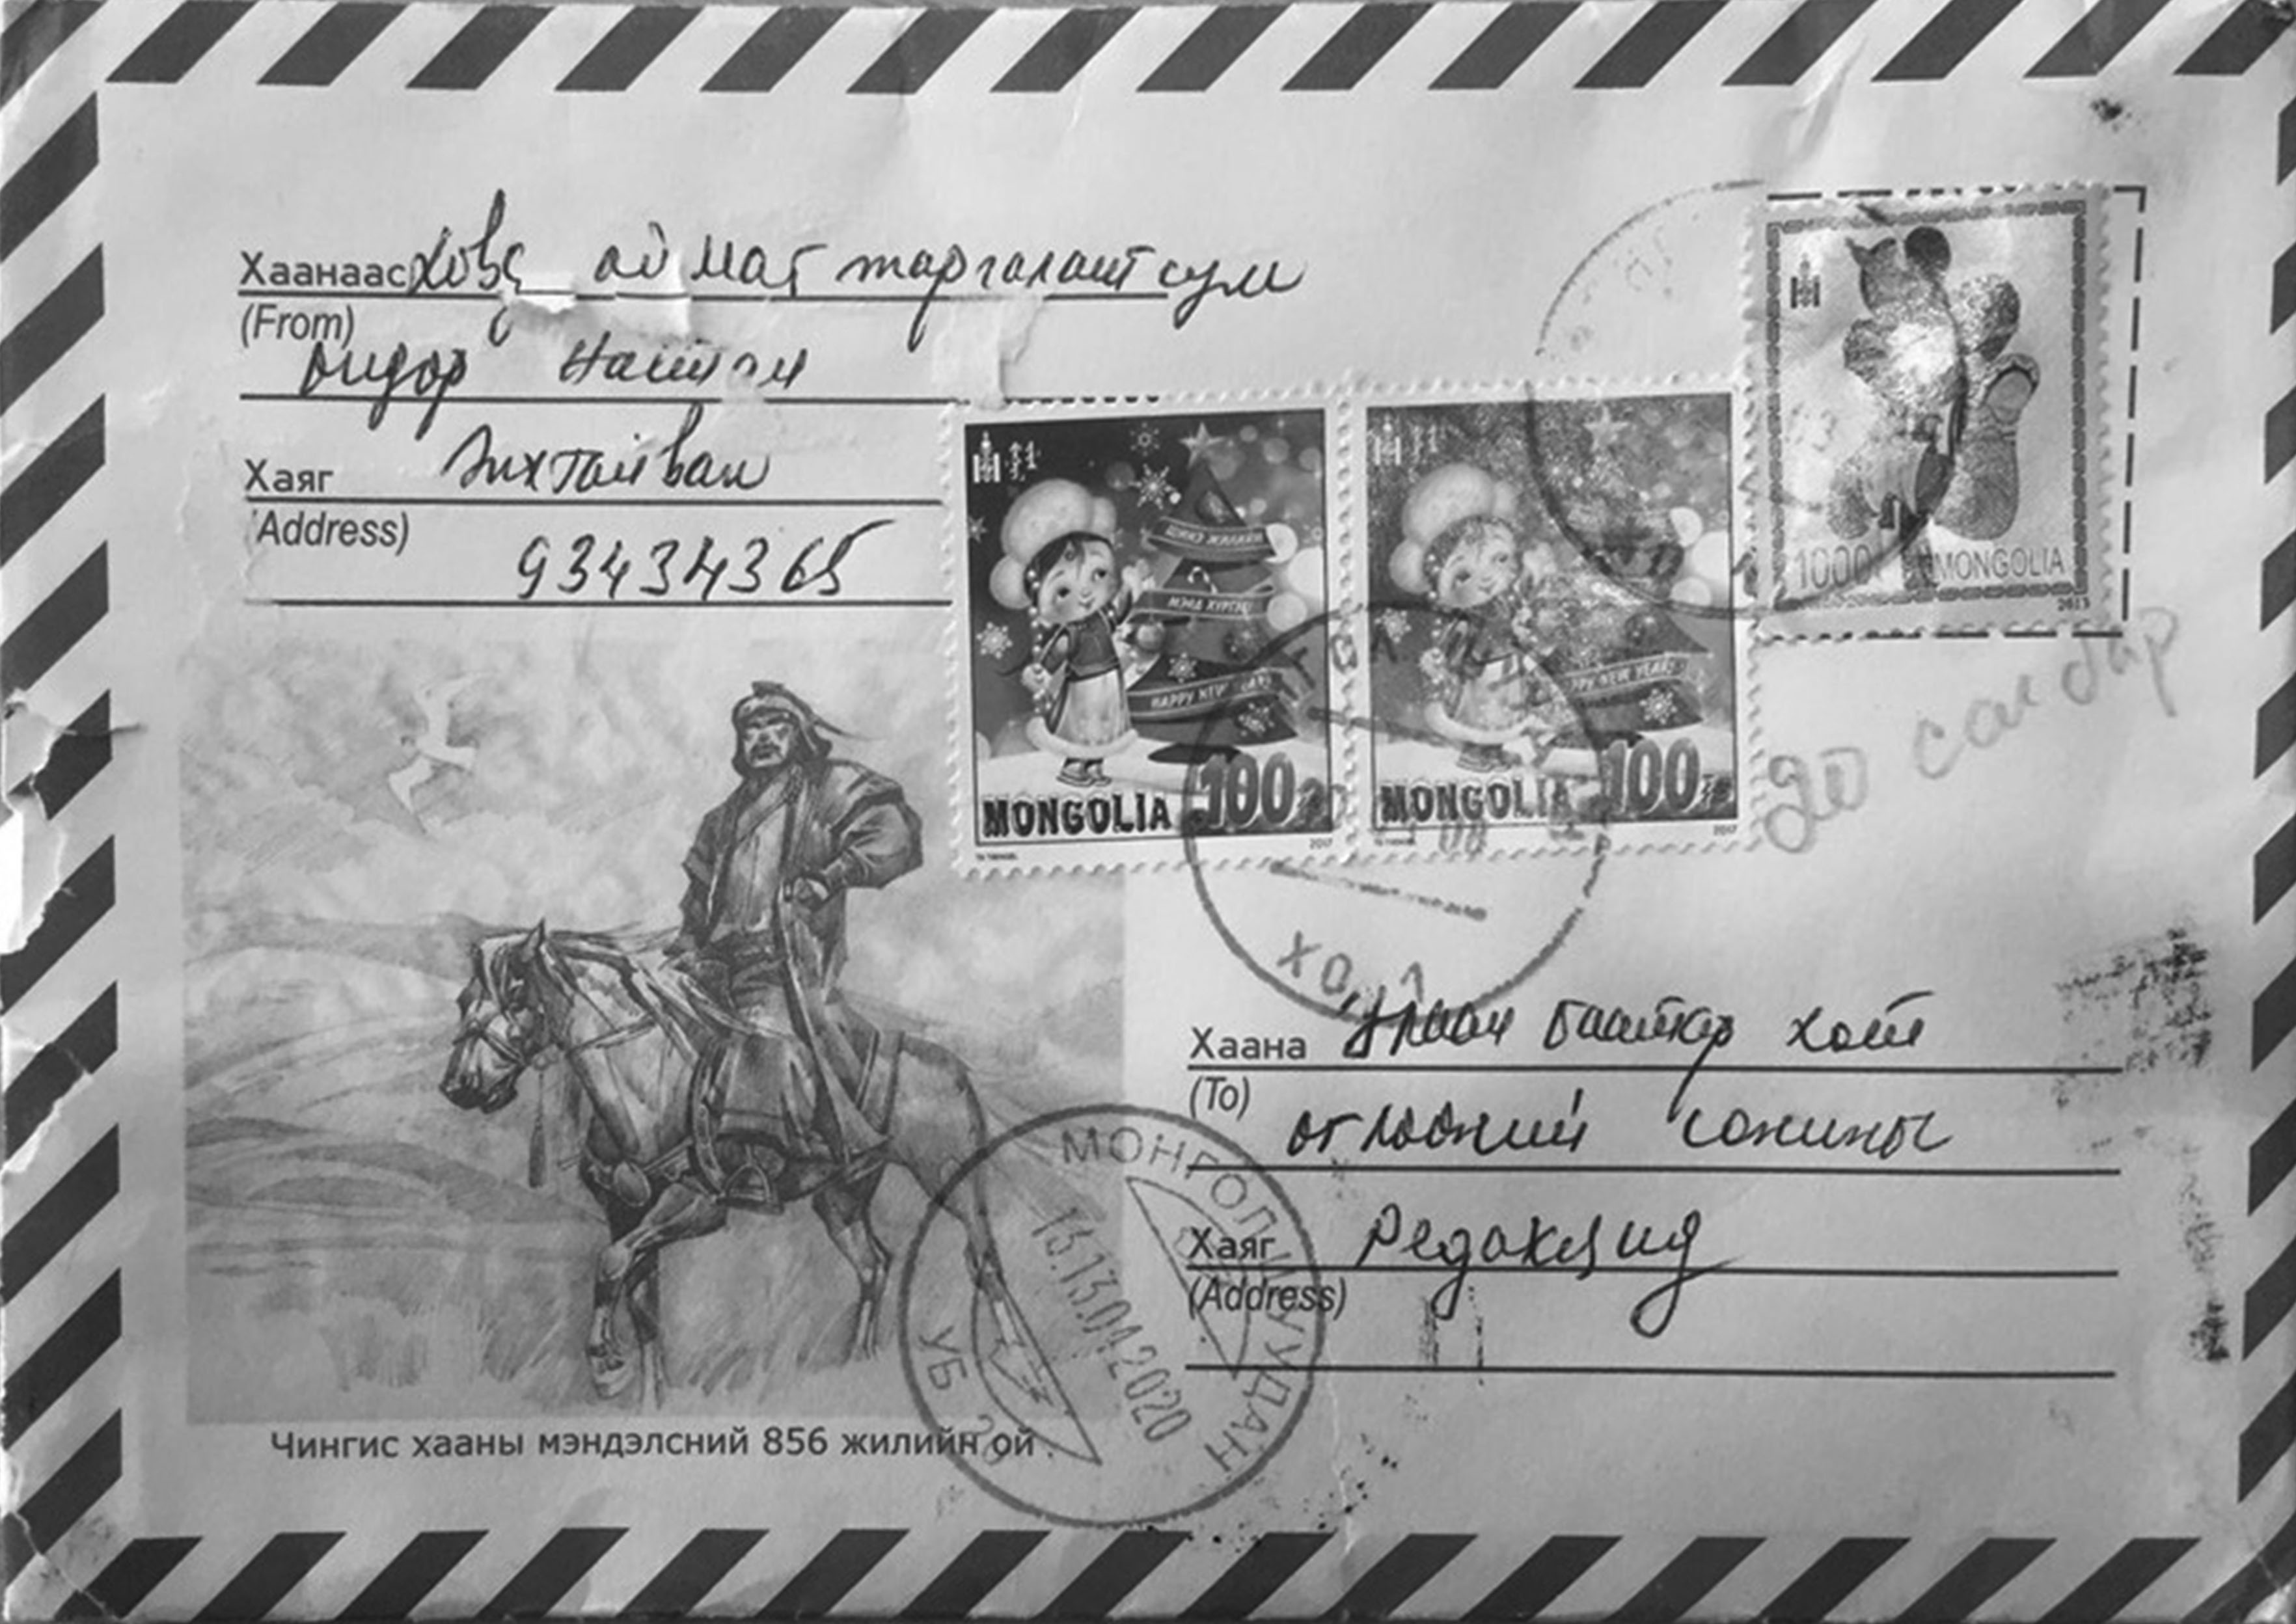 Хаанаас Ховд аймаг жаргалант сум
(From)
Хаяг Энхтайван
(Address)
93434365
ШИНЭ ЖИЛИЙН
МЭНД ХҮРГЭЕ
HAPPY NEW YEAR!
MONGOLIA 100
2017
HAPPY NEW YEAR!
MONGOLIA 100
2017
1000₮ MONGOLIA
20 салбар
Хаана Улаан баатар хот
(To)
өглөөний сонины
Хаяг Редакцид
(Address)
МОНГОЛ ШУУДАН
13.04.2020
УБ
Чингис хааны мэндэлсний 856 жилийн ой